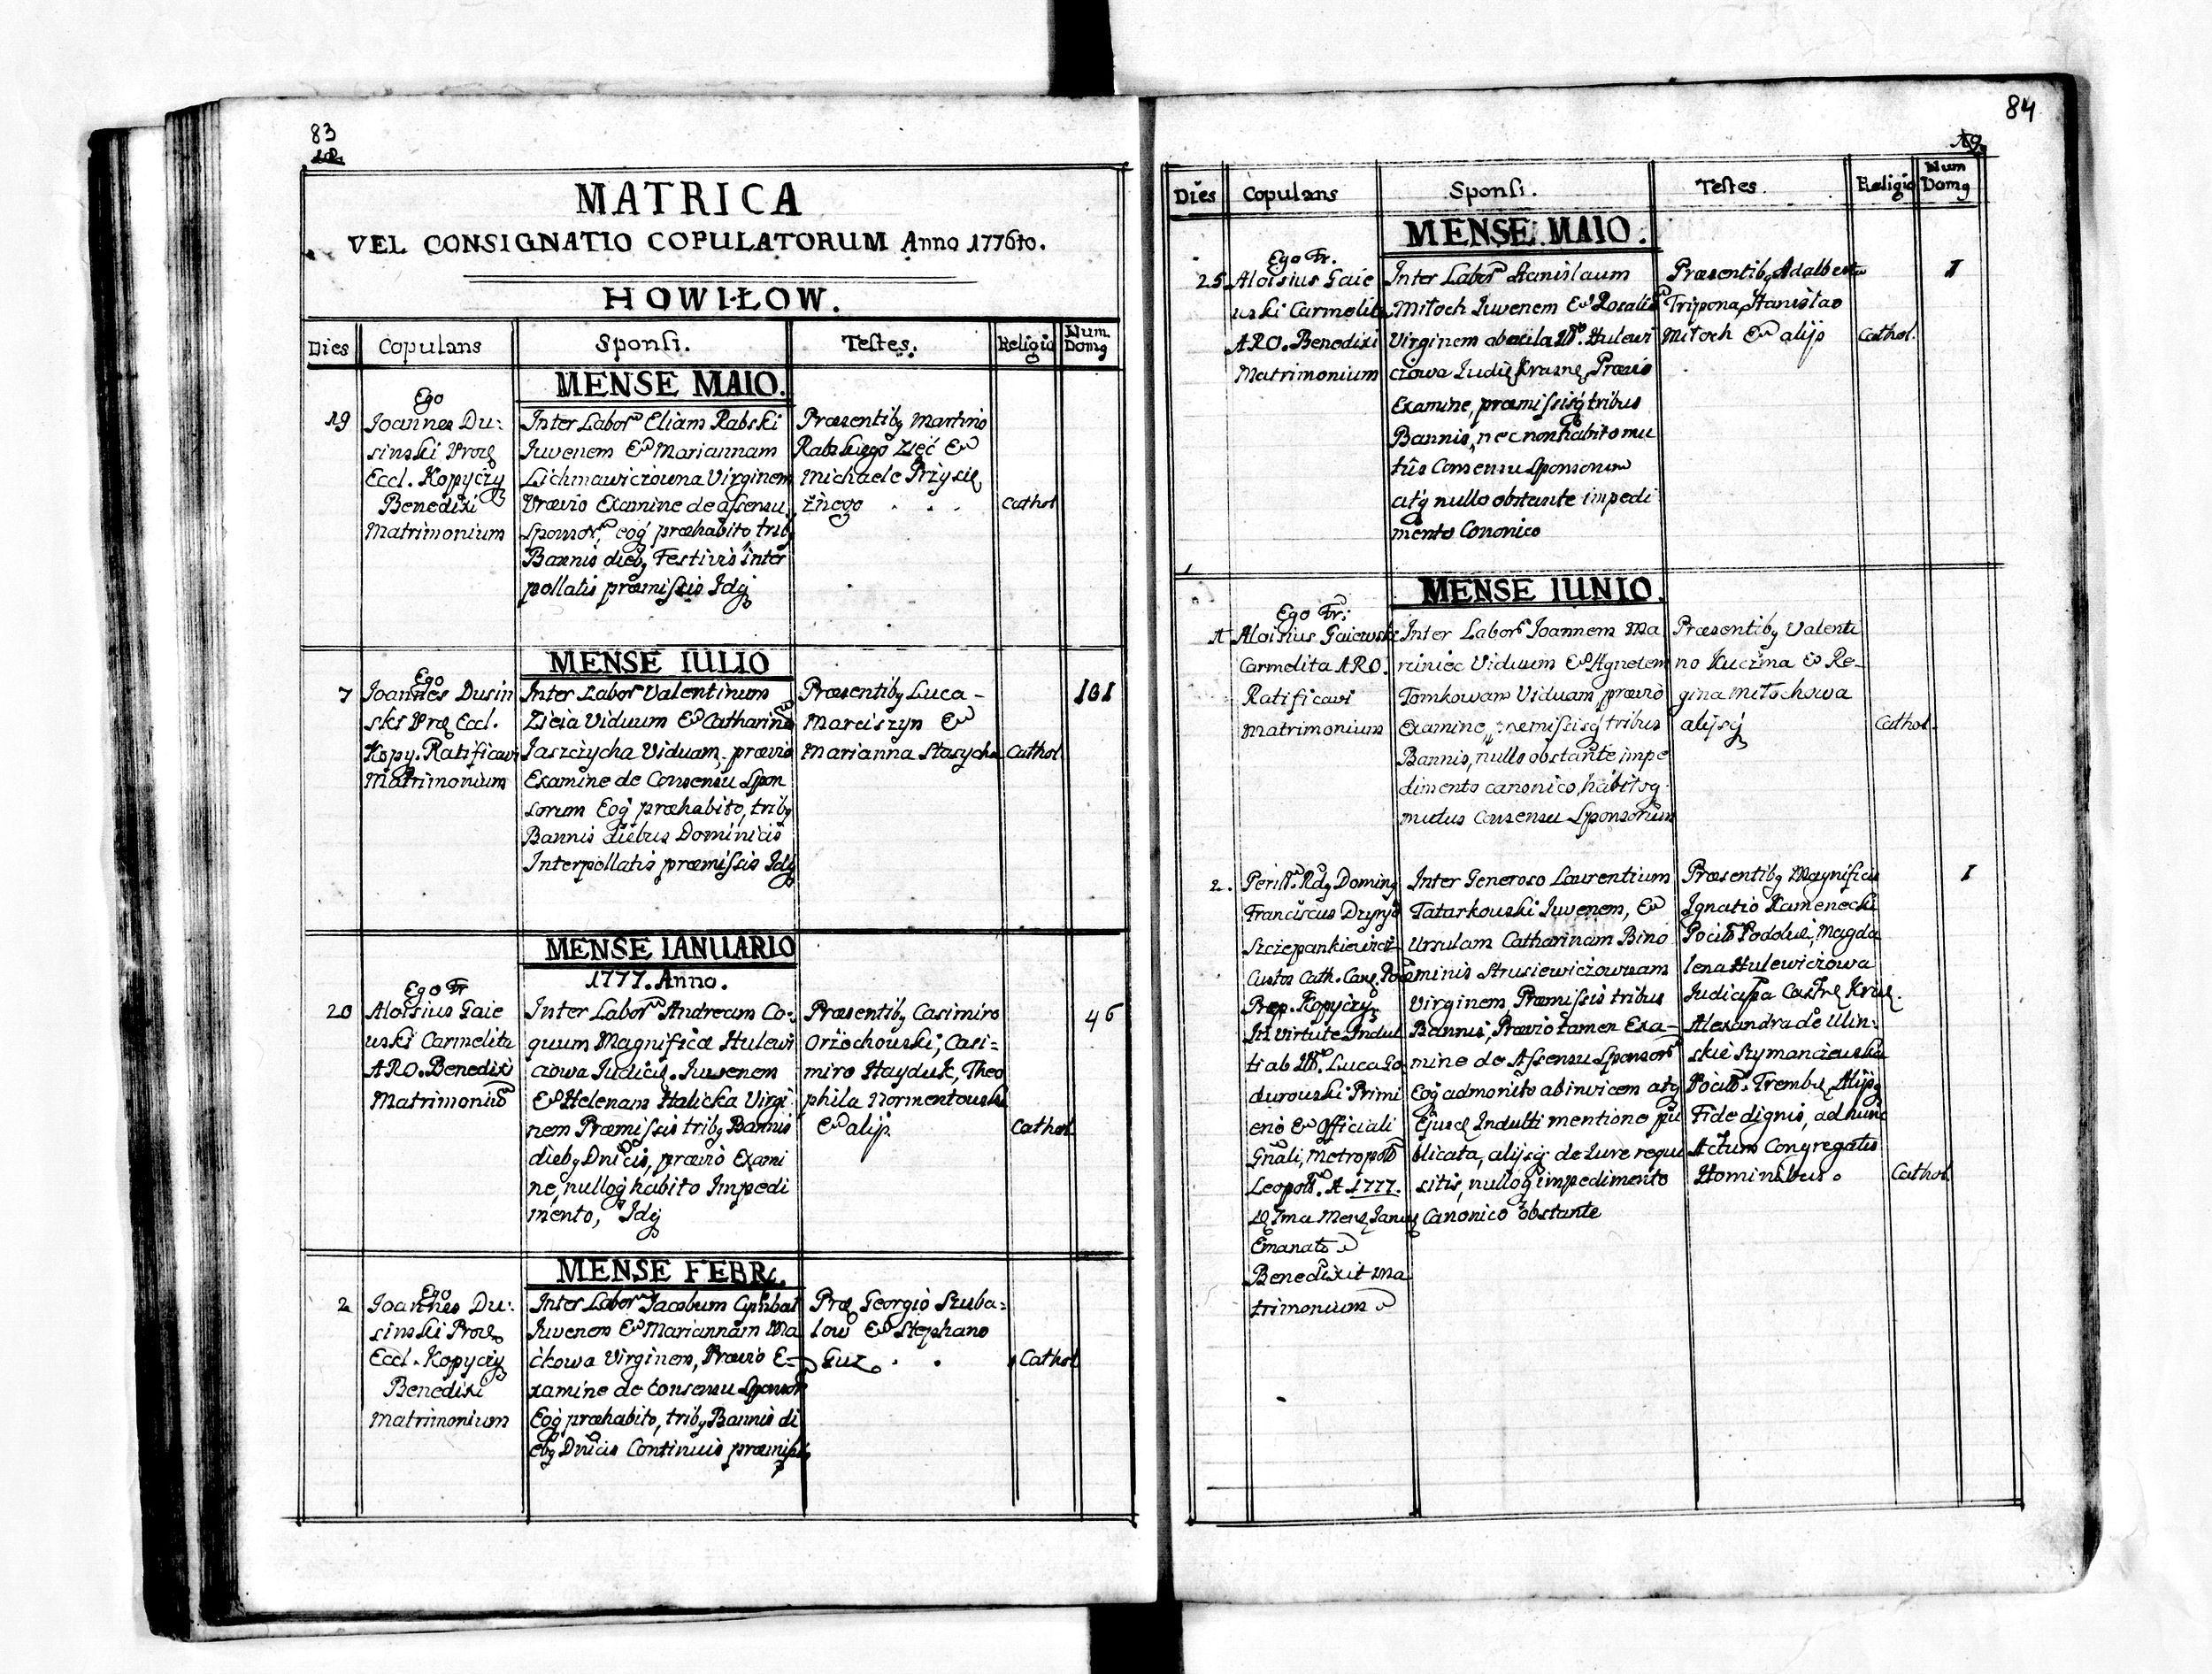 83
MATRICA
VEL CONSIGNATIO COPULATORUM Anno 1776to.
HOWIŁOW.
Dies Copulans Sponsi. Testes. Religio Num Domg
MENSE MAIO.
19
Ego
Joannes Du:
sinski Præ
Eccl. Kopyczy
Benedixi
Matrimonium
Inter Labor Eliam Rabski
Juvenem & Mariannam
Lichmawiczowna Virginem
Prævio Examine de assensu
Sponsor, eoq præhabito trib
Bannis dieb Festivis inter
pollatis præmissis Idq
Præsentib Martino
Rabskiego Zięć &
Michaele Przysię
żnego
Cathol
MENSE IULIO
7
Ego
Joannes Dusin
ski Præ Eccl.
Kopy. Ratificavi
Matrimonium
Inter Labor Valentinum
Zicia Viduum & Catharina
Jaszczycha Viduam, prævio
Examine de Consensu Spon
sorum Eoq præhabito, trib
Bannis diebus Dominicis
Interpollatis præmissis Idq
Præsentib Luca -
Marciszyn &
Marianna Stasycha
Cathol
101
MENSE IANUARIO
1777. Anno.
20
Ego Fr
Aloisius Gaie
uski Carmelita
ARO. Benedixi
Matrimoniu
Inter Labor Andream Co-
quum Magnificæ Hulewi
czowa Judicis. Juvenem
& Helenam Halicka Virgi
nem Præmissis trib Bannis
dieb Dnicis, prævio Exami
ne, nulloq habito Impedi
mento, Idq
Præsentib Casimiro
Orzechouski, Casi=
miro Hayduk, Theo
phila Normentouska
& alijs
Cathol
46
MENSE FEBR.
2
Ego
Joannes Du:
sinski Præ
Eccl. Kopyczy
Benedixi
Matrimonium
Inter Labor Jacobum
Juvenem & Mariannam Ma
ćkowa Virginem, Prævio E-
xamine de consensu Sponsor
Eoq præhabito, trib Bannis di
eb Dnicis Continuis præmissis
Præ Georgio Szuba=
low & Stephano
Guz
Cathol
84
Dies Copulans Sponsi. Testes. Religio Num Domg
MENSE MAIO.
25
Ego Fr.
Aloisius Gaie
uski Carmelita
ARO. Benedixi
Matrimonium
Inter Labor Stanislaum
Mitoch Juvenem & Rosalia
Virginem ab aula Hulewi
czowa Judic Krasne, Prævio
Examine, præmissisq tribus
Bannis, nec non habito mu
tuo Consensu Sponsorum
atq nullo obstante impedi
mento Cononico
Præsentib Adalberto
Trzpona, Stanislao
Mitoch & alijs
Cathol.
1
MENSE IUNIO.
1
Ego Fr:
Aloisius Gaiewski
Carmelita ARO.
Ratificavi
Matrimonium
Inter Labor Joannem Ma
riniec Viduum & Agnetem
Tomkowam Viduam prævio
Examine, præmissisq tribus
Bannis, nullo obstante impe
dimento canonico, habitoq
mutuo Consensu Sponsorum
Præsentib Valenti
no Kuczma & Re-
gina Mitochowa
alijsq
Cathol.
2.
Perill. Rd Doming
Franciscus
Szczepankiewicz
Custos Cath. Cam.
Præp. Kopyczy
In Virtute Indul
ti ab Ill. Luca Go
durouski Primi
cerio & Officiali
Gnali, Metropol
Leopol. A 1777.
7ma Mens Januar
Emanato
Benedixit Ma
trimonium
Inter Generoso Laurentium
Tatarkouski Juvenem, &
Ursulam Catharinam Bino
minis Strusiewiczownam
Virginem, Præmissis tribus
Bannis, Prævio tamen Exa-
mine de Assensu Sponsor
Eoq admonito abinvicem atq
Ejusd Indulti mentione pu
blicata, alijsq de Jure requi
sitis, nulloq impedimento
Canonico obstante
Præsentib Magnifico
Ignatio Kamenecki
Pocill Podoliæ, Magda
lena Hulewiczowa
Judicissa Castre
Alexandra de Ulin-
skie Szymanczewska
Pocill. Trembu, Alijsq
Fide dignis, ad hunc
Actum Congregatis
Hominibus.
Cathol.
1